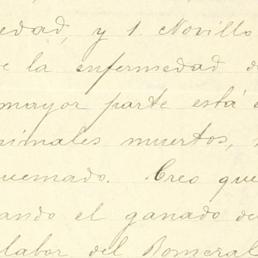 edad, y 1. Novillo
e la enfermedad d
mayor parte está
nimales muertos,
uemado. Creo que
ando el ganado de
labor del Romeral